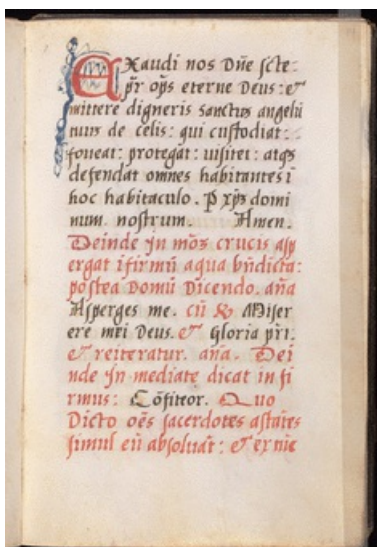 EXaudi nos Dñe scte:
pr̄ ops̄ eterne Deus: et
mittere digneris sanctus angelū
tuum de celis: qui custodiat:
foueat: protegat: uisitet: atqȝ
defendat omnes habitantes ī
hoc habitaculo. P xp̄ȝ domi
num nostrum. Amen.
Deinde in mōȝ crucis asp
ergat īfirmū aqua bn̄dicta:
postea Domū Dicendo. an̄a
Asperges me. cū ps Miser
ere mei Deus. et Gloria pr̄i.
et reiteratur. an̄a. Dei
nde in mediate dicat in fi
rmus: Cōfiteor. Quo
Dicto oēs sacerdotes astātes
simul eū absoluāt: et ex nūc